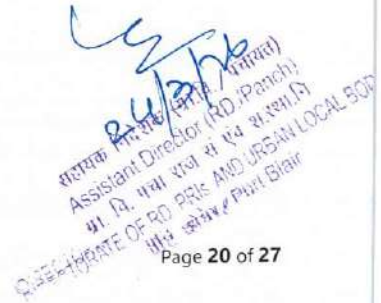 24/2/26
सहायक निदेशक (ग्रा.वि./पंचायत)
Assistant Director (RD./Panch)
ग्रा. वि. पंचा राज सं एवं श.स्था.नि
DIRECTORATE OF RD, PRIs AND URBAN LOCAL BOD
Port Blair
Page 20 of 27